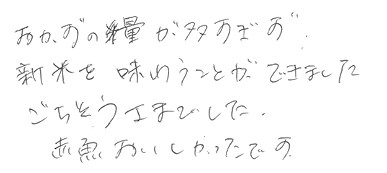 おかずの糧が多すぎず.
新米を味わうことができました
ごちそうさまでした.
赤魚おいしかったです